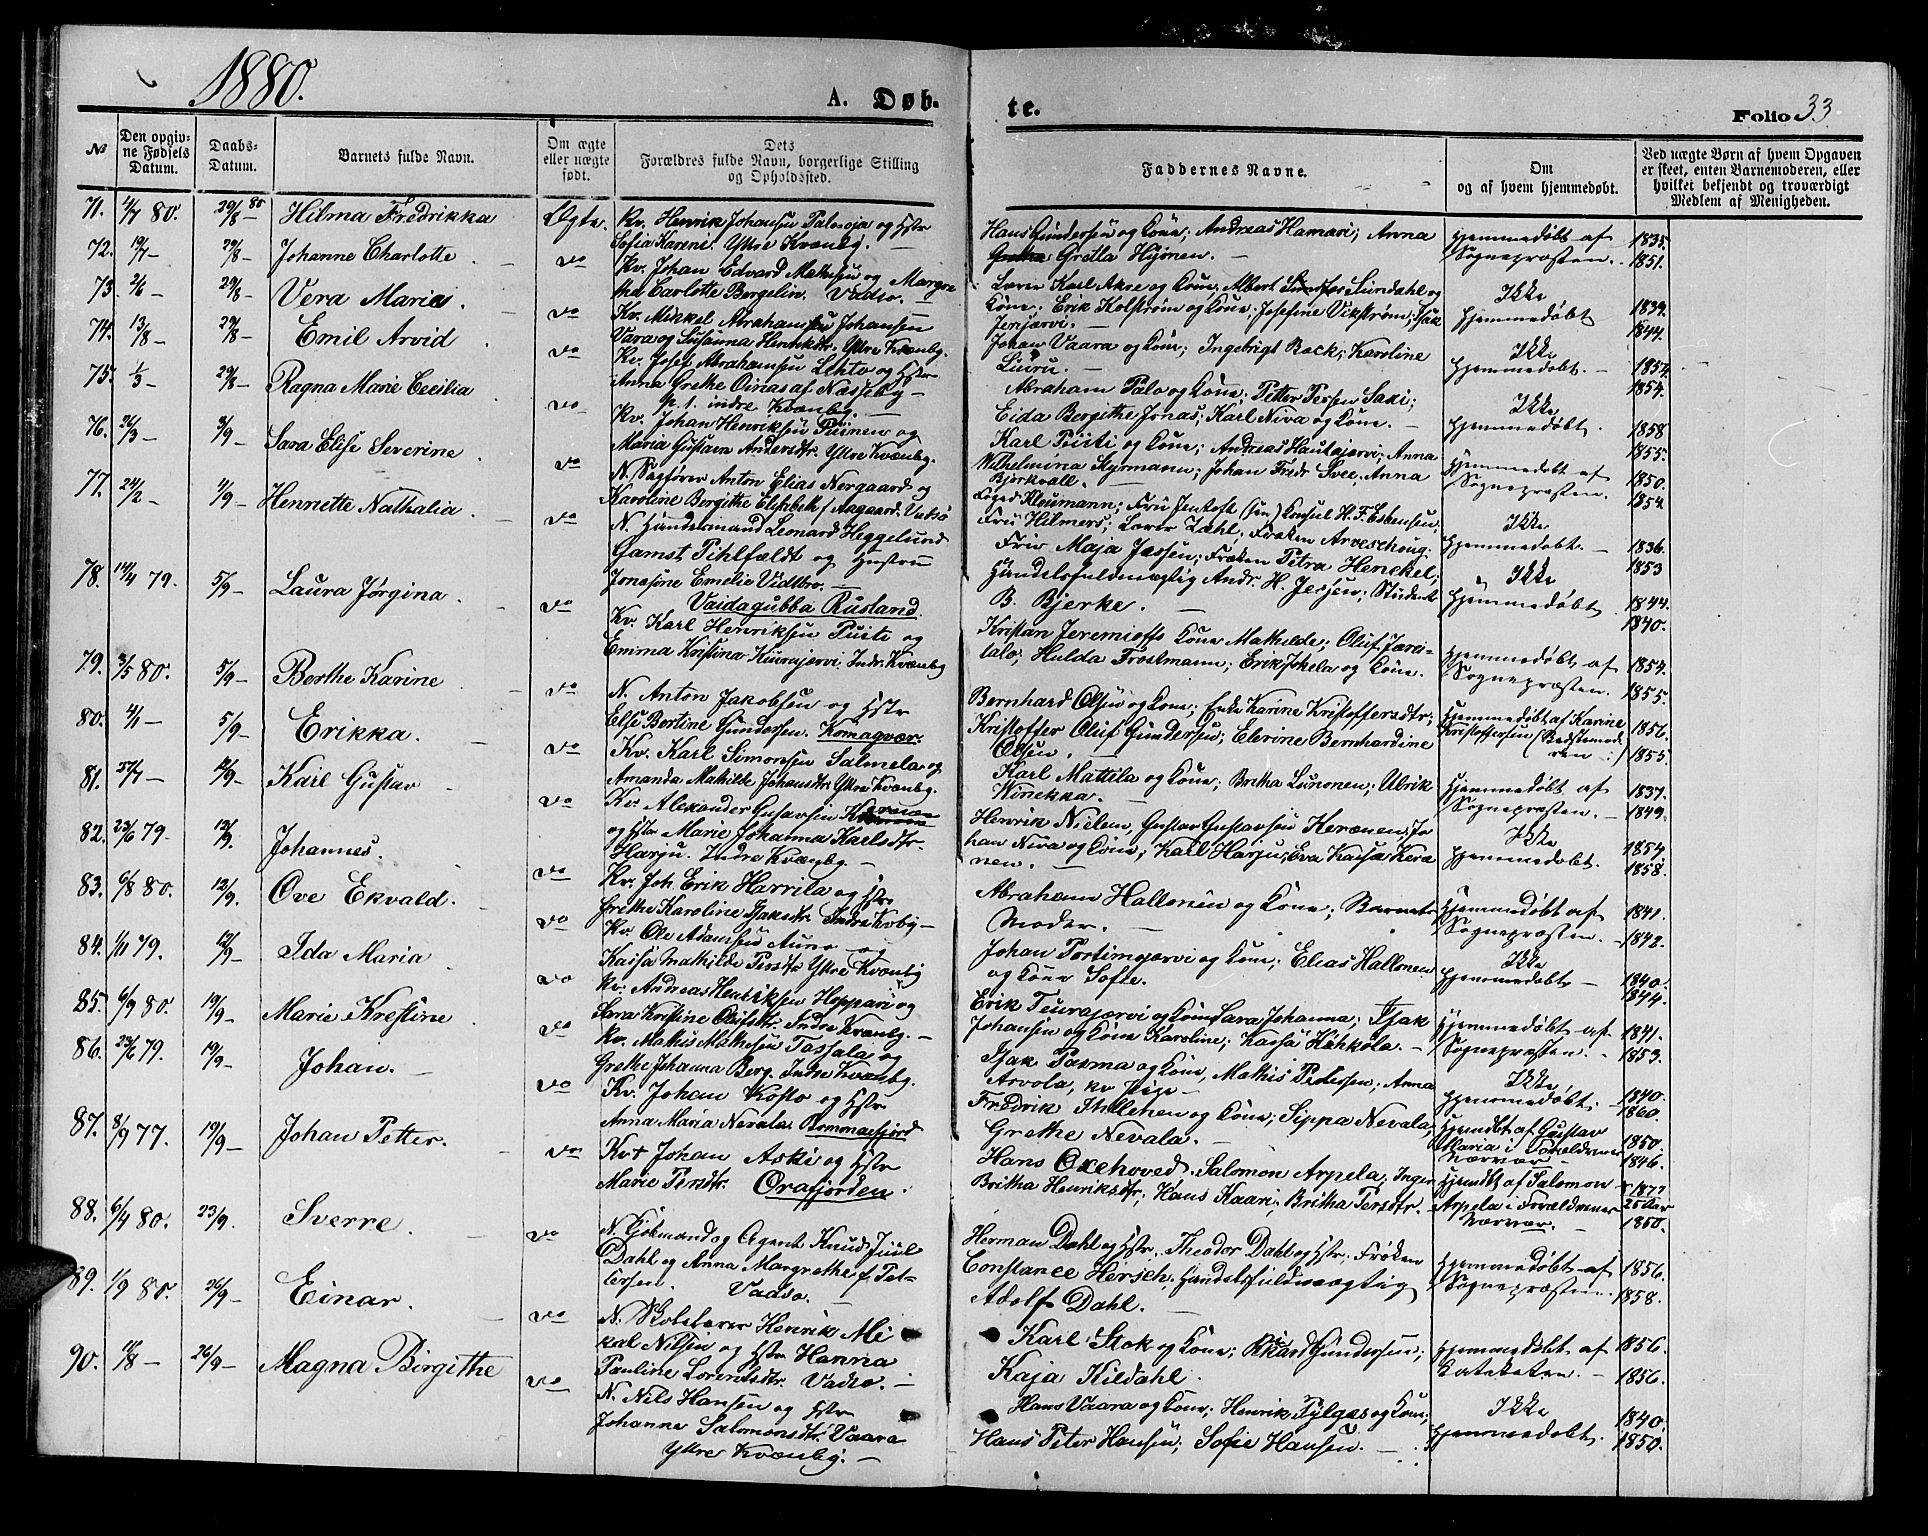 1880.
A. Døb-
te.
Folio 33
No
Den opgiv-
ne Fødsels
Datum.
Daabs-
Datum.
Barnets fulde Navn.
Om ægte
eller uægte
født.
Dets
Forældres fulde Navn, borgerlige Stilling
og Opholdssted.
Faddernes Navne.
Om
og af hvem hjemmedøbt.
Ved uægte Børn af hvem Opgaven
er skeet, enten Barnemoderen, eller
hvilket bekjendt og troværdigt
Medlem af Menigheden.
71. 2/7 80. 29/8 80 Hilma Fredrikka Ægte.
Kv. Henrik Johansen Palosoja og Hstr
Sofia Karene. Ytre Kvænbg.
Hans Gundersen og Kone; Andreas Hamari; Anna
Gretha Hyönen.
Hjemmedøbt af
Sognepræsten.
1835.
1851.
72. 19/7 29/8 Johanne Charlotte
Kv. Johan Edvard Mathisen og Margre
tha Carlotte Borgelin. Vadsø.
Lærer Karl Akre og Kone; Albert Sundahl og
Kone; Erik Kolstrøm og Kone; Josefine Vikstrøm; Isak
Jerijærvi.
Ikke
hjemmedøbt
1839.
1844.
73. 2/6 29/8 Vera Maria
Kv. Mikkel Abrahamsen Johansen
Vara og Susanna Henriksdtr. Ytre Kvænbg.
Johan Vaara og Kone; Ingebrigt Bock; Karoline
Liuru.
Ikke
hjemmedøbt.
1854.
1854.
74. 13/8 29/8 Emil Arvid
Kv. Josef Abrahamsen Lehto og Hstr
Anna Grethe Oinas af Næsseby
p. t. indre Kvænbg.
Abraham Palo og Kone; Petter Persen Saki;
Eida Bergithe Jonas; Karl Niva og Kone.
Ikke
hjemmedøbt.
1858
1855.
75. 1/3 29/8 Ragna Marie Cecilia
Kv. Johan Henriksen Puinen og
Maria Gustava Andersdtr. Ytre Kvænbg.
Karl Piiti og Kone; Andreas Hautajærvi; Anna
Wilhelmina Styrmann; Johan Fredr Svee; Anna
Bjorkvall.
Hjemmedøbt af
Sognepræsten.
1850.
1854.
76. 26/3 3/9 Sara Elise Severine
N. Sagfører Anton Elias Norgaard og
Karoline Bergithe Elisabeth f. Aagaard. Vadsø
Foged Kleumann; Fru Jentoft (sen) Konsul H. F. Esbensen;
Fru Hilmers; Lærer Zahl; Frøken Arveschoug.
Ikke
hjemmedøbt.
1836.
1853
77. 24/2 4/9 Henriette Nathalia
N. Handelsmand Leonard Heggelund
Gamst Pihlfeldt og Hustru
Jonasine Emelie Vidtbro.
Vaidagubba Rusland.
Fru Maja Jessen; Frøken Petra Henckel;
Handelsfuldmægtig Andr. H. Jessen; Student
B. Bjerke.
Ikke
hjemmedøbt.
1844.
1840.
78. 14/4 79. 5/9 Laura Jørgina
Kv. Karl Henriksen Puiti og
Emma Kristina Kiurujærvi. Indr. Kvænbg
Kristan Jeremioffs Kone Mathilde; Oluf Jærvi-
talo; Hulda Frostmann; Erik Jokela og Kone.
Hjemmedøbt af
Sognepræsten.
1854.
1855.
79. 3/5 80. 5/9 Berthe Karine
N. Anton Jakobsen og Hstr
Else Bertine Gundersen. Komagvær
Bernhard Olsen og Kone; Enke Karine Kristoffersdtr;
Kristoffer Oluf Gundersen; Elerine Bernhardine
Olsen.
Hjemmedøbt af Karine
Kristoffersen (Bedstemod
eren.)
1856.
1855.
80. 4/1 5/9 Erikka.
Kv. Karl Simonsen Salmela og
Amanda Mathilde Johansdtr. Ytre Kvænbg.
Karl Mattila og Kone; Britha Lunonen; Ulrik
Winekka.
Hjemmedøbt af
Sognepræsten.
1837.
1849.
81. 12/9 Karl Gustav
Kv. Alexander Gustavsen Keränen
og Hstr Marie Johanna Karlsdtr.
Harju. Indre Kvænbg.
Henrik Nielsen, Gustav Gustavsen Keränen; Jo
han Niva og Kone; Karl Harju; Eva Kaisa Kerä
nen.
Ikke
hjemmedøbt.
1854
1858.
82. 23/6 79. 12/9 Johannes.
Kv. Joh. Erik Harrila og Hstr
Grethe Karoline Isaksdtr. Indre Kvbg
Abraham Hallonen og Kone; Barnets
Moder.
Hjemmedøbt af
Sognepræsten.
1841.
1842.
83. 6/8 80. 12/9 Ove Ekvald.
Kv. Ole Adamsen Auno og
Kaisa Mathilde Persdtr Ytre Kvænbg
Johan Portimojærvi og Kone; Elias Hallonen
og Kone Sofie.
Ikke
hjemmedøbt
1840.
1844.
84. 1/11 79. 12/9 Ida Maria
Kv. Andreas Henriksen Hoppari og
Sara Kristine Olufsdtr. Indre Kvænbg.
Erik Teurajærvi og Kone Sara Johanna; Isak
Johansen og Kone Karoline; Kaisa Hihkola.
Hjemmedøbt af
Sognepræsten.
1841.
1853.
85. 6/9 80. 19/9 Marie Kristine
Kv. Mathis Mathisen Tassala og
Grethe Johanna Berg. Indre Kvænbg.
Isak Pasma og Kone, Mathis Pedersen; Anna
Arvola, kv Pige
Ikke
hjemmedøbt.
1840.
1860.
86. 23/6 79. 19/9 Johan.
Kv. Johan Kosto og Hstr
Anna Maria Nevala. Rommaefjord
Fredrik Ihillehen og Kone; Sippa Nevala;
Grethe Nevala.
Hjemdbt af Gustav
Maria i Forældrenes
Nærvær
1850.
1846.
87. 8/9 77. 19/9 Johan Petter.
Kv. Johan Aski og Hstr
Marie Persdtr. Orafjorden.
Hans Oxehoved. Salomon Arpela; Inger
Britha Henriksdtr; Hans Kaari; Britha Persdtr.
Hjemdbt af Salomon
Arpela i Forældrenes
Nærvær.
25 Aar
1850.
88. 6/4 80. 23/9. Sverre.
N. Kjøbmand og Agent Knud Juul
Dahl og Anna Margrethe f. Pet-
tersen. Vadsø.
Herman Dahl og Hstr; Theodor Dahl og Hstr; Frøken
Constance Hersch; Handelsfuldmægtig
Adolf Dahl.
Hjemmedøbt af
Sognepræsten.
1856.
1858.
89. 1/9 80. 26/9 Einar.
N. Skolelærer Henrik Mi
kal Nilsen og Hstr Hanna
Pauline Lorentsdtr. Vadsø.
Karl Stok og Kone; Rikard Gundersen;
Kaja Kildahl.
Hjemmedøbt af
Kateketen.
1856.
1856.
90. 11/8 26/9 Magna Birgithe
N. Nils Hansen og Hstr
Johanne Salomonsdtr. Vaara
Ytre Kvænbg.
Hans Vaara og Kone; Henrik Pylges og Kone;
Hans Peter Hansen; Sofie Hansen.
Ikke
hjemmedøbt.
1840.
1850.